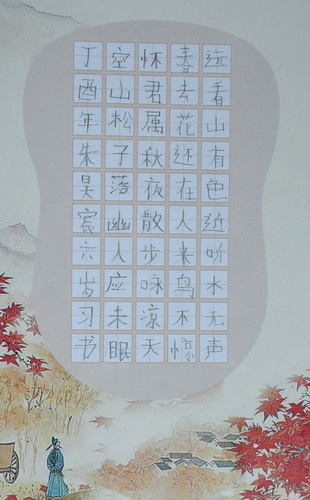 远看山有色近听水无声
春去花还在人来鸟不惊
怀君属秋夜散步咏凉天
空山松子落幽人应未眠
丁酉年朱昊宸六岁习书